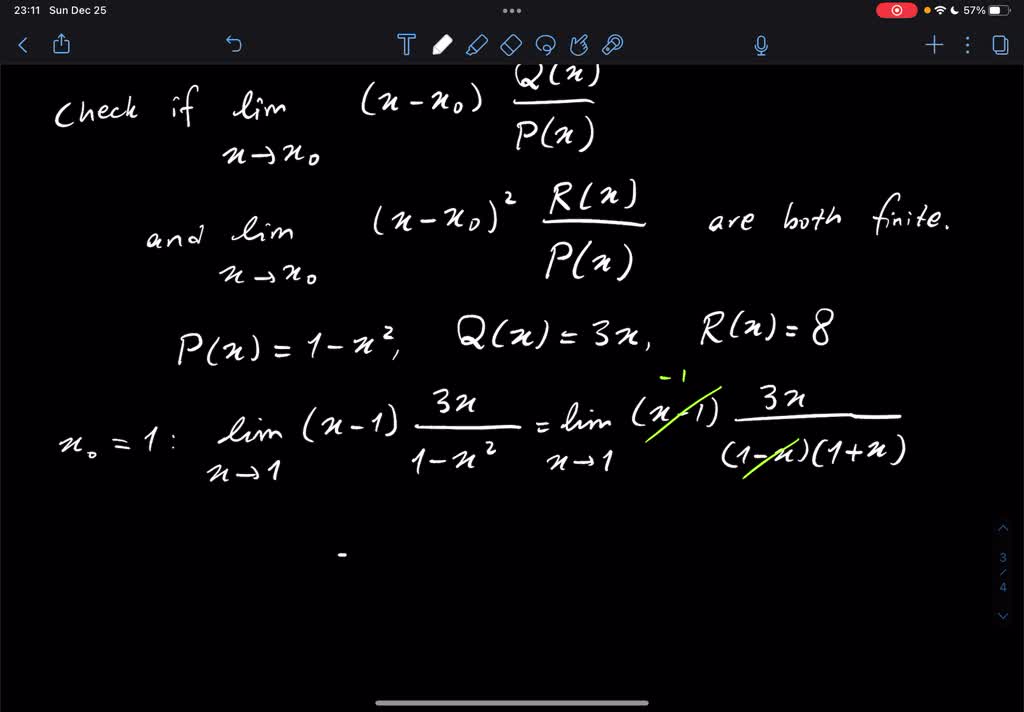 23:11 Sun Dec 25 57%
Check if lim x→x₀ (x-x₀) Q(x)/P(x)
and lim x→x₀ (x-x₀)² R(x)/P(x) are both finite.
P(x) = 1-x², Q(x) = 3x, R(x) = 8
x₀ = 1: lim x→1 (x-1) 3x/(1-x²) = lim x→1 (x-1) -1 3x/((1-x)(1+x))
3/4